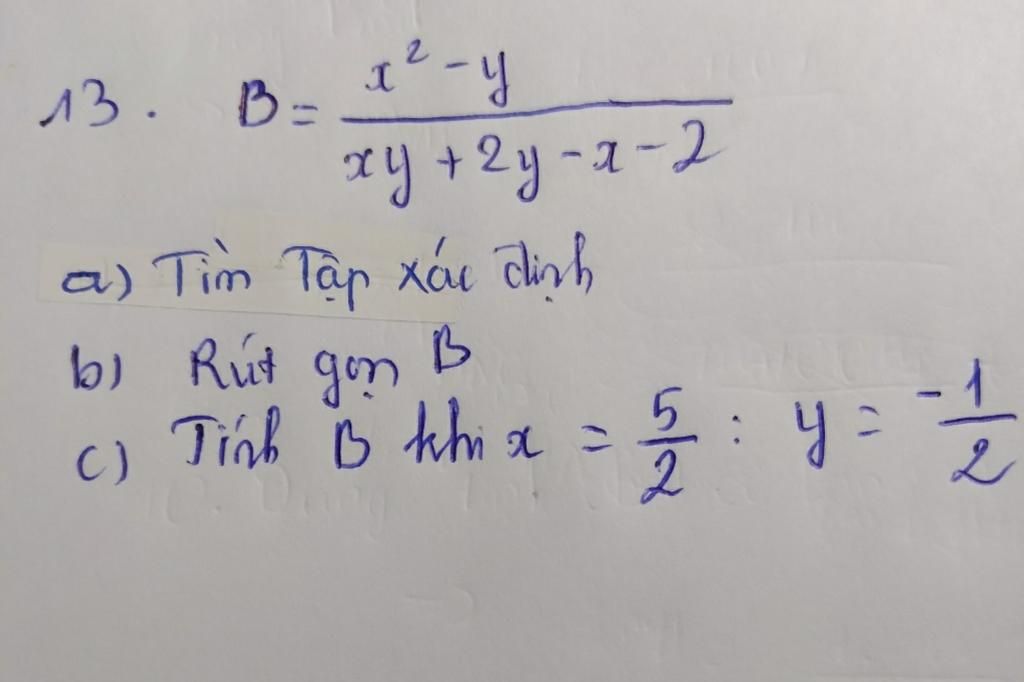 13. B = \frac{x² - y}{xy + 2y - x - 2}
a) Tìm Tập xác định
b) Rút gọn B
c) Tính B khi x = \frac{5}{2} : y = \frac{-1}{2}